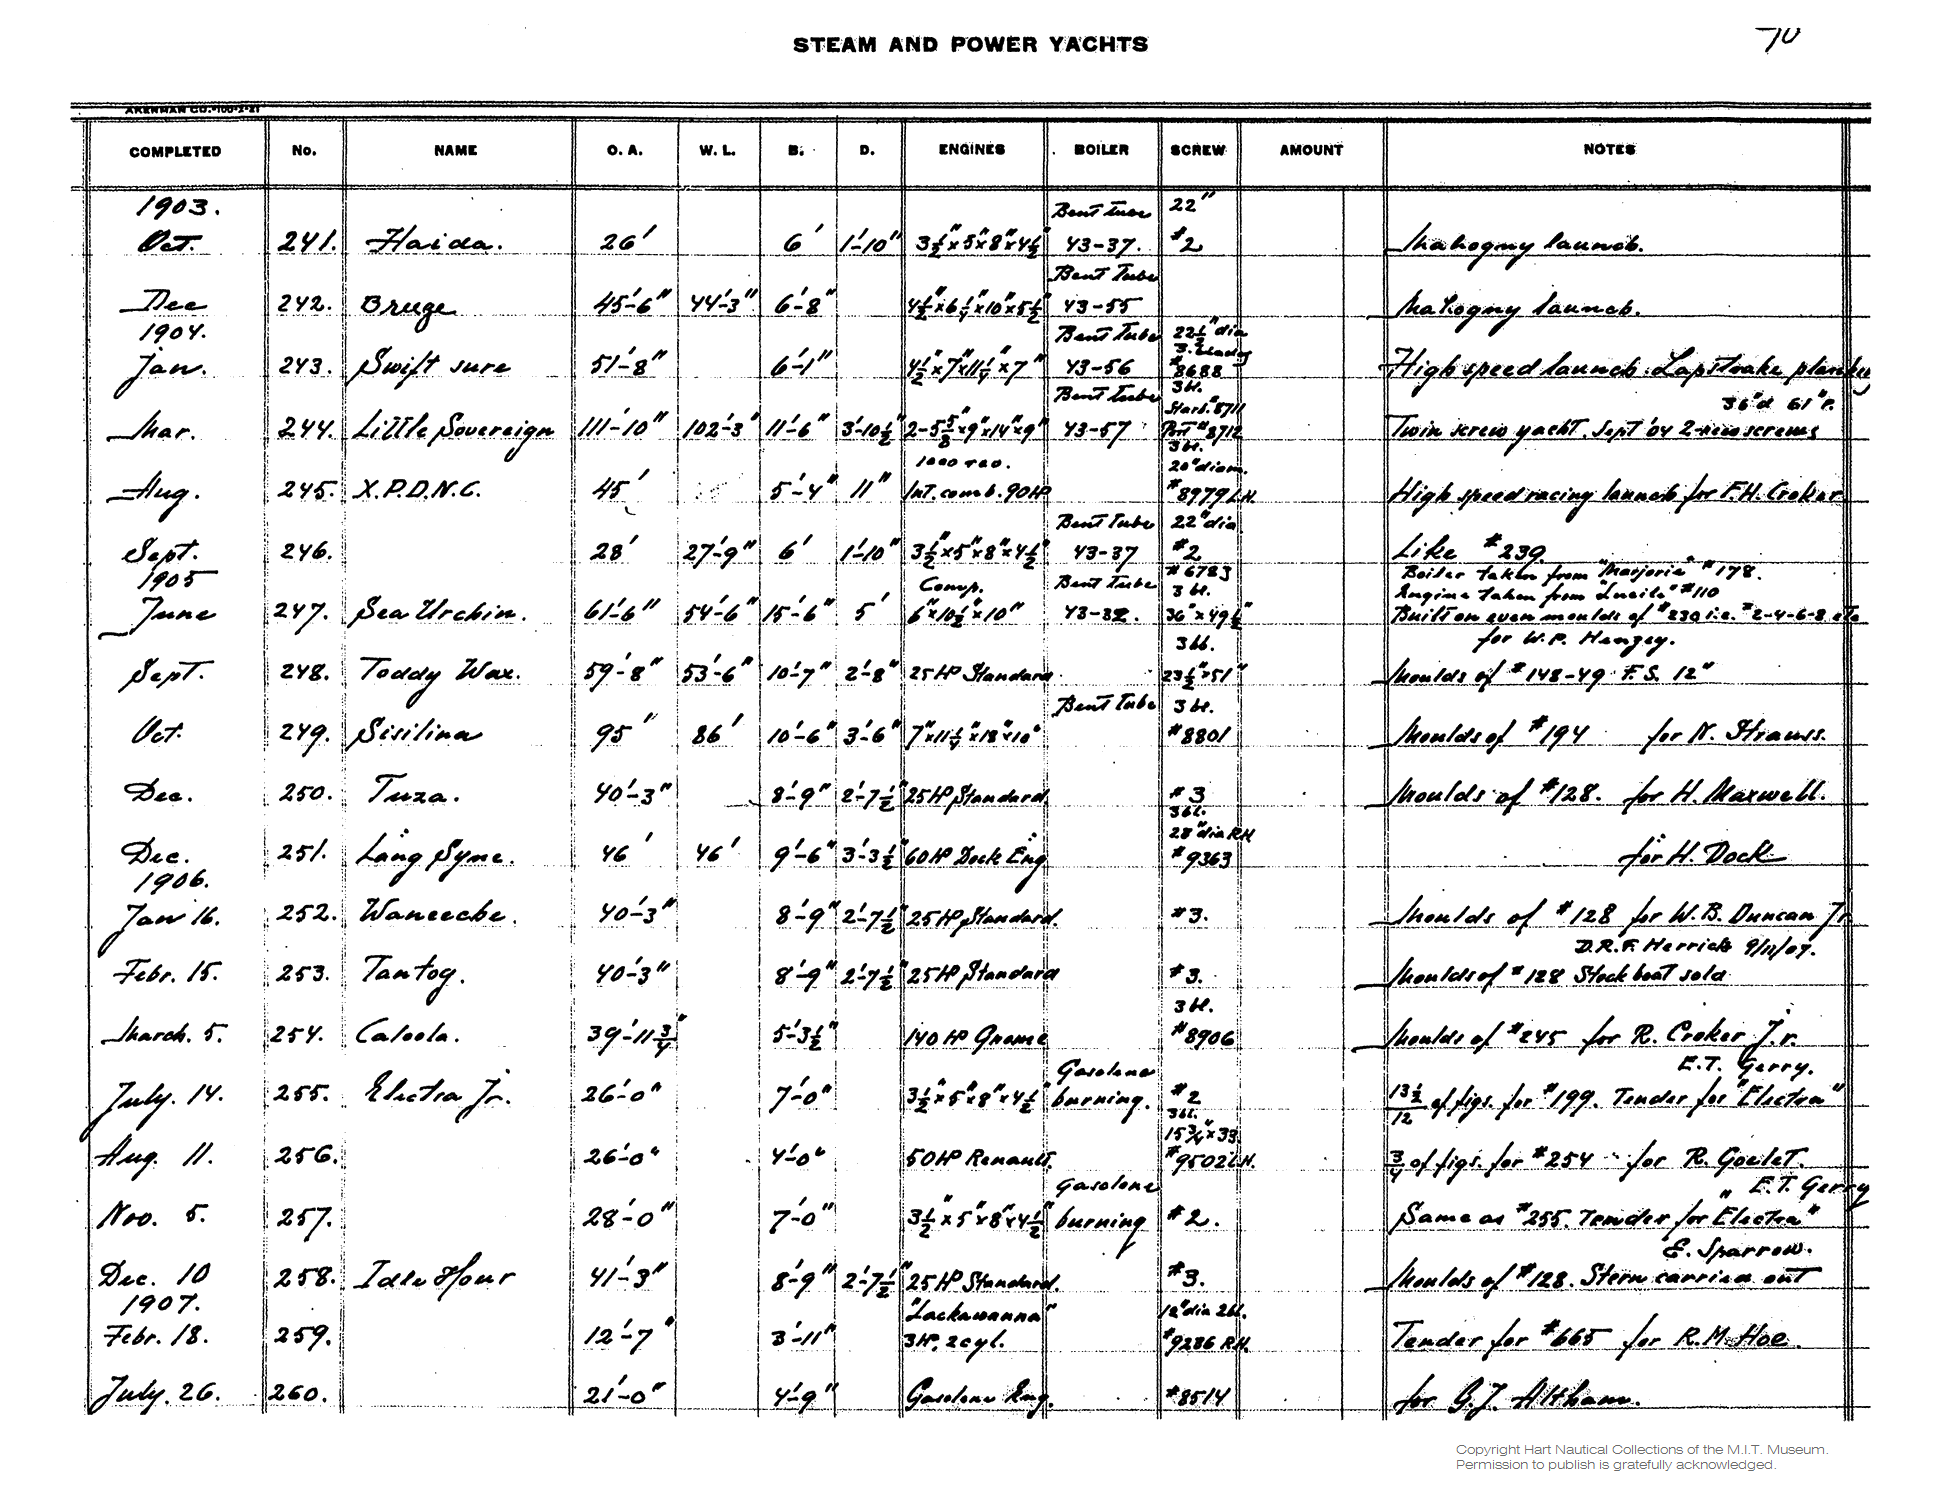 STEAM AND POWER YACHTS 70
AKERMAN CO.-100-2-21
COMPLETED No. NAME O. A. W. L. B. D. ENGINES BOILER SCREW AMOUNT NOTES
1903. Bent tube 22"
Oct. 241. Haida. 26' 6' 1'-10" 3½"x5"x8"x4½" 43-37. #2 Mahogny launch.
Bent Tube
Dec 242. Bruge 45'-6" 44'-3" 6'-8" 4½"x6¼"x10"x5½" 43-55 Mahogny launch.
1904. Bent Tube 22½" dia
3. blades
Jan. 243. Swift sure 51'-8" 6'-1" 4½"x7"x11¼"x7" 43-56 #8688 High speed launch Lapstrake
Bent Tube 3 bl.
Starb. #8711 36"d 61"P.
Mar. 244. Little Sovereign 111'-10" 102'-3" 11'-6" 3'-10½" 2-5⅝"x9"x14"x9" 43-57 Port #8712 Twin screw yacht. Sept '04 2-new screws
3 bl.
1000 rev. 20" diam.
Aug. 245. X.P.D.N.C. 45' 5'-4" 11" Int. comb. 90 HP #8979 L.H. High speed racing launch for F.H. Croker
Bent Tube 22" dia
Sept. 246. 28' 27'-9" 6' 1'-10" 3½"x5"x8"x4½" 43-37 #2 Like #239.
1905 Comp. Bent Tube #6783 Boiler taken from "Marjorie" #178.
3 bl. Engine taken from "Lucile" #110
June 247. Sea Urchin. 61'-6" 54'-6" 15'-6" 5' 6"x10½"x10" 43-32. 36"x49½" Built on even moulds of #230 i.e. #2-4-6-8 etc
3 bl. for W.P. Henzey.
Sept. 248. Toddy Wax. 59'-8" 53'-6" 10'-7" 2'-8" 25 HP Standard 23½"x51" Moulds of #148-49 F.S. 12"
Bent Tube 3 bl.
Oct. 249. Sisilina 95' 86' 10'-6" 3'-6" 7"x11¼"x18"x10" #8801 Moulds of #194 for N. Strauss.
Dec. 250. Tuza. 40'-3" 8'-9" 2'-7½" 25 HP Standard #3 Moulds of #128. for H. Maxwell.
3 bl.
28" dia R.H.
Dec. 251. Lang Syne. 46' 46' 9'-6" 3'-3½" 60 HP Dock Eng #9363 for H. Dock
1906.
Jan 16. 252. Waneeche. 40'-3" 8'-9" 2'-7½" 25 HP Standard. #3. Moulds of #128 for W.B. Duncan Jr.
D.R.F. Herrick 9/11/07.
Febr. 15. 253. Tantog. 40'-3" 8'-9" 2'-7½" 25 HP Standard #3. Moulds of #128 Stock boat sold
3 bl.
March. 5. 254. Caloola. 39'-11¾" 5'-3½" 140 HP Gnome #8906 Moulds of #245 for R. Croker Jr.
Gasolene E.T. Gerry.
July. 14. 255. Electra Jr. 26'-0" 7'-0" 3½"x5"x8"x4½" burning. #2 13½/12 of figs. for #199. Tender for "Electra"
3 bl.
15¾"x33
Aug. 11. 256. 26'-0" 4'-0" 50 HP Renault. #9502 L.H. ¾ of figs. for #254 for R. Goelet.
Gasolene E.T. Gerry
Nov. 5. 257. 28'-0" 7'-0" 3½"x5"x8"x4½" burning #2. Same as #255. Tender for "Electra"
E. Sparrow.
Dec. 10 258. Idle Hour 41'-3" 8'-9" 2'-7½" 25 HP Standard. #3. Moulds of #128. Stern carried out
1907. "Lackawanna" 12" dia 2 bl.
Febr. 18. 259. 12'-7" 3'-11" 3 HP. 2 cyl. #9286 R.H. Tender for #665 for R.M. Hoe.
July. 26. 260. 21'-0" 4'-9" Gasolene Eng. #8514 for G.J. Altham.
Copyright Hart Nautical Collections of the M.I.T. Museum.
Permission to publish is gratefully acknowledged.